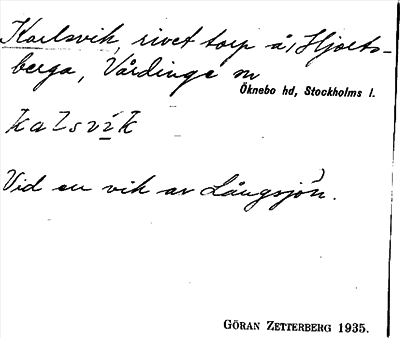 Karlsvik, rivet torp å Hjorts-
berga, Vårdinge sn
Öknebo hd, Stockholms l.
kalsvik
Vid en vik av Långsjön.
GÖRAN ZETTERBERG 1935.